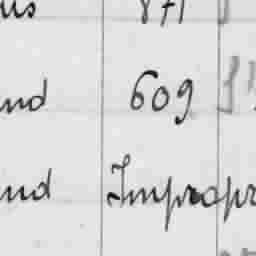 us 871
nd 609
nd Impropr